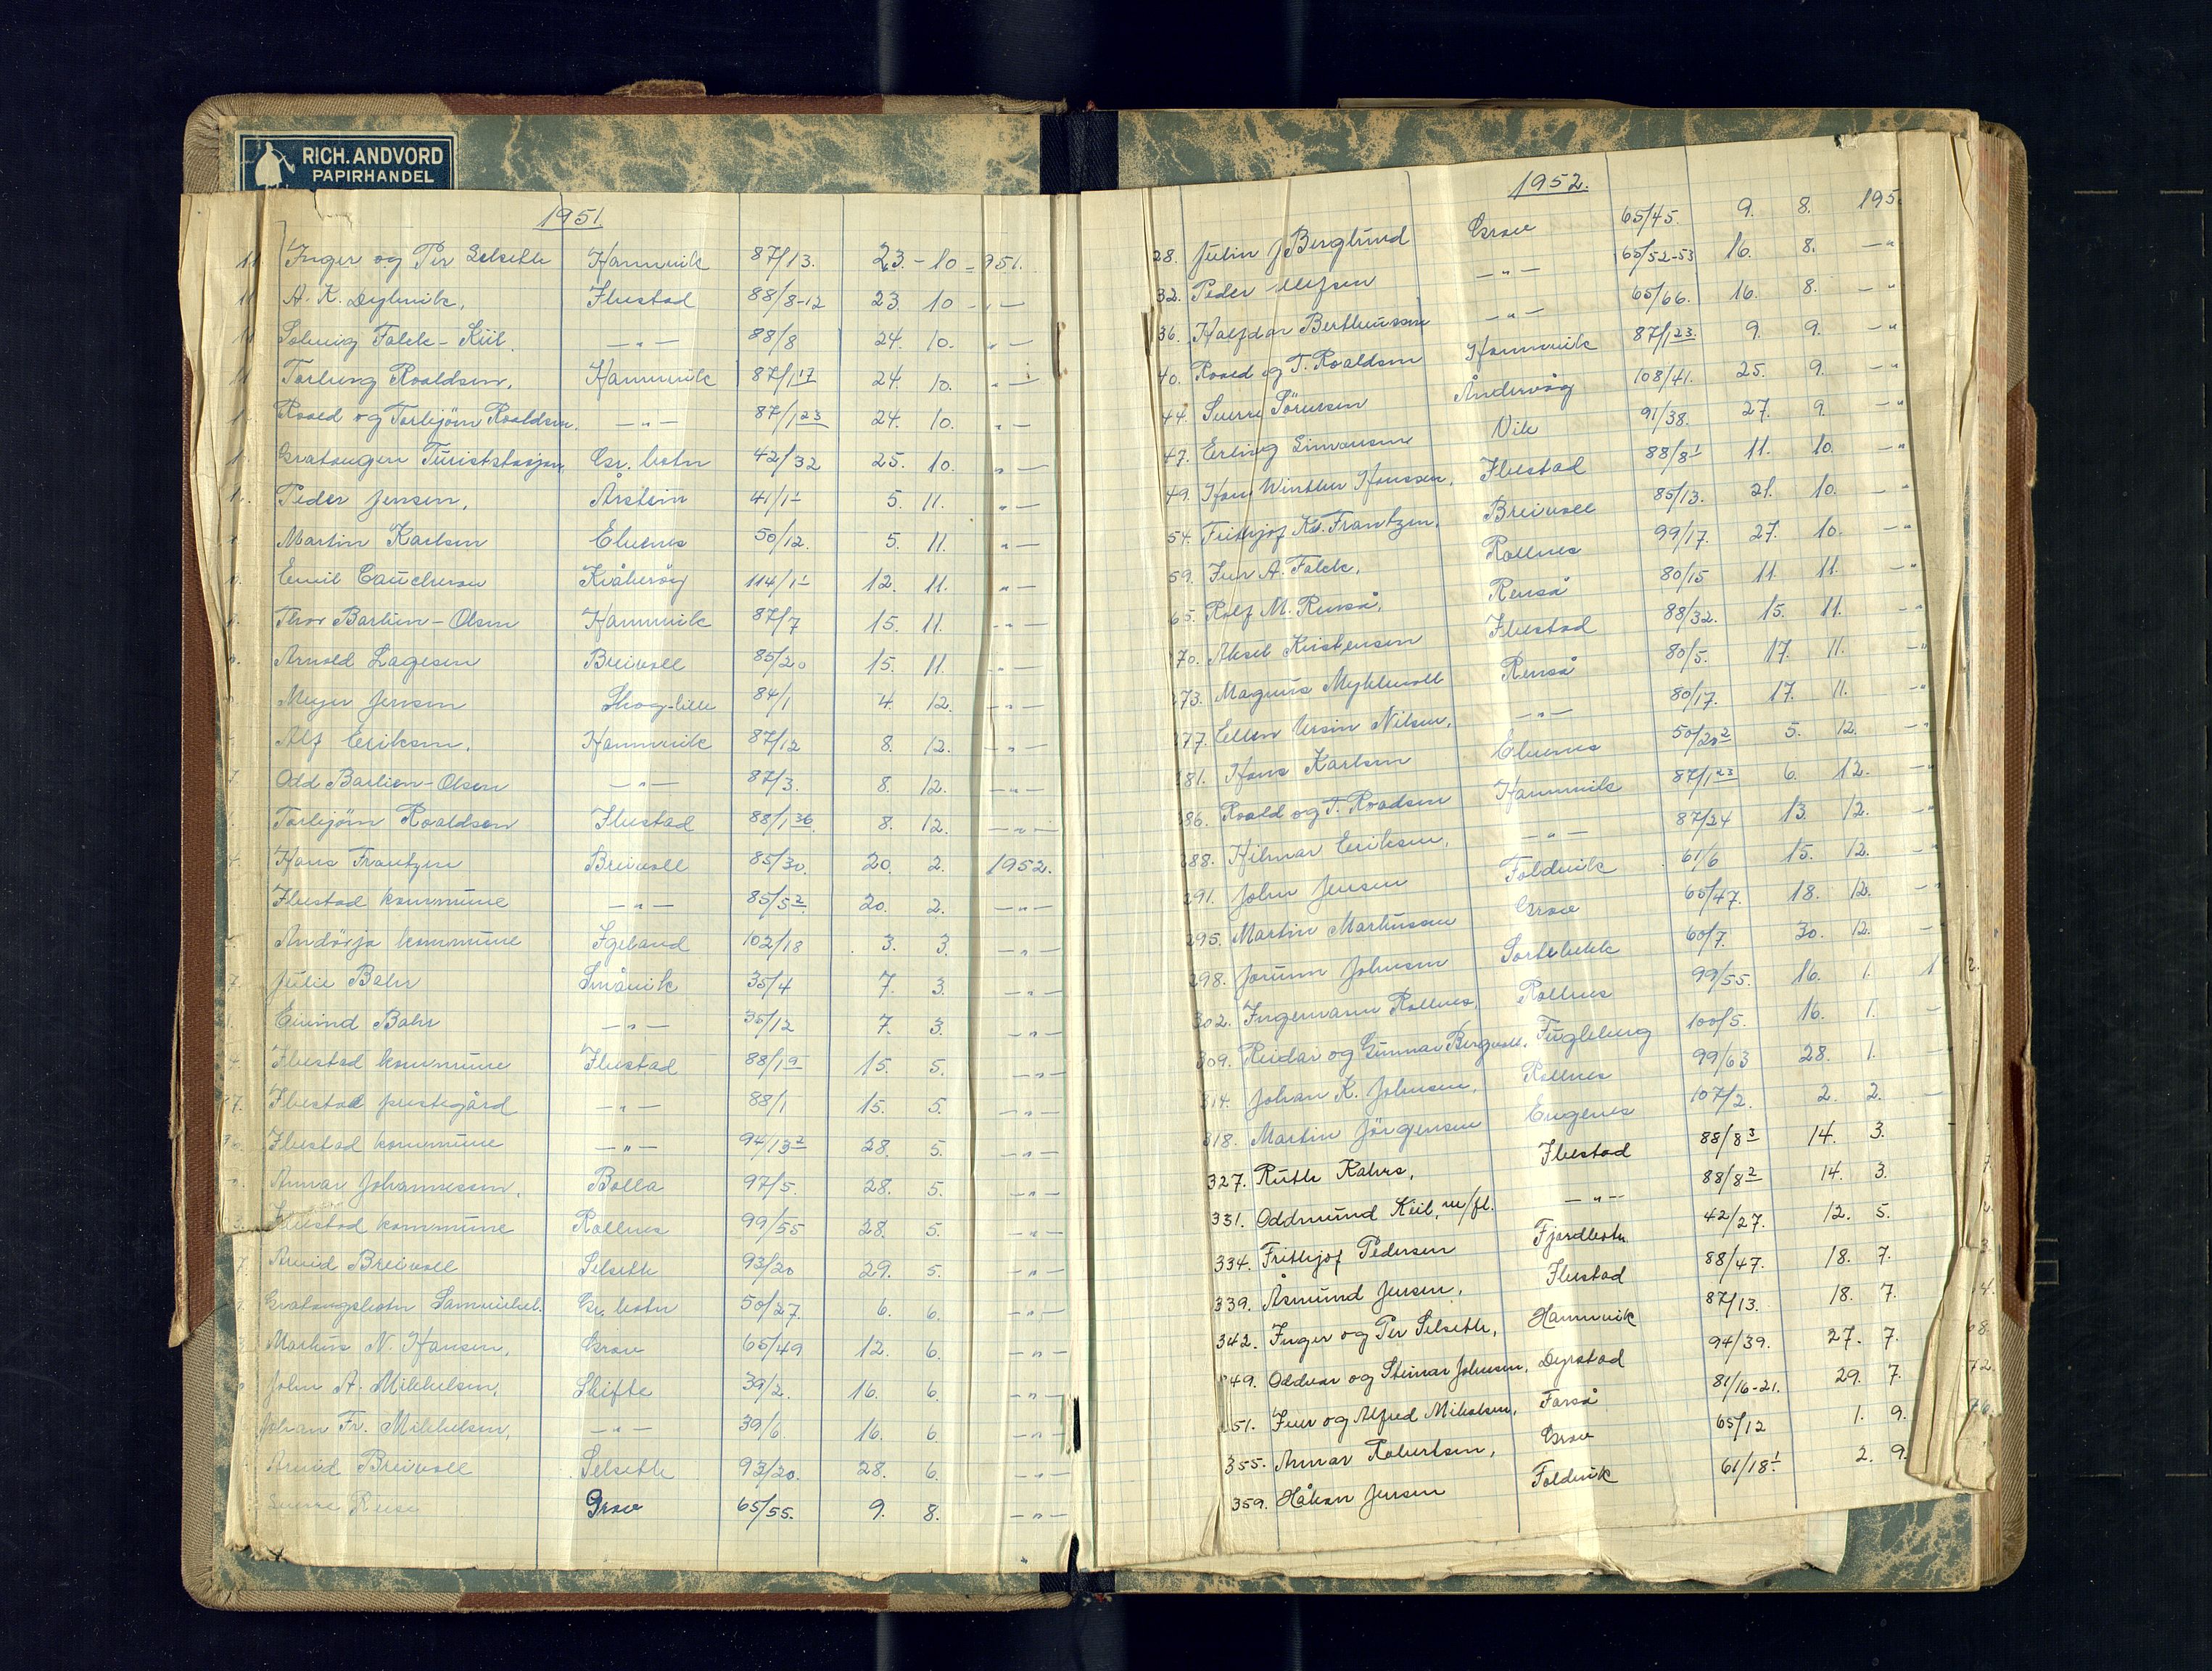 RICH. ANDVORD
PAPIRHANDEL
1951.
Inger og Per Selseth Hamnvik 87/13. 23. - 10 - 951.
A. K. Dybvik, Ibestad 88/8-12 23. 10 - " -
Solveig Falck - Kiil - " - 88/8 24. 10. " -
Torberg Roaldsen, Hamnvik 87/1 17 24. 10. " -
Roald og Torbjörn Roaldsen. - " - 87/1 23 24. 10. " -
Gratangen Turiststasjon Gr. botn 42/32 25. 10. " -
Peder Jensen, Årstein 41/1 5. 11. " -
Martin Karlsen Elvenes 50/12. 5. 11. " -
Emil 114/1 12. 11. " -
Thor Barlien - Olsen Hamnvik 87/7 15. 11. - " -
Arnold Lagesen Breivoll 85/20 15. 11. - " -
Meyer Jensen Skog-lille 84/1 4. 12. - " -
Alf Eriksen, Hamnvik 87/12 8. 12. - " -
Odd Barlien - Olsen - " - 87/3. 8. 12. - " -
Torbjörn Roaldsen Ibestad 88/1 36 8. 12. - " -
Hans Frantzen Breivoll 85/30. 20. 2. 1952.
Ibestad kommune - " - 85/5 2 20. 2. - " -
Andörja kommune Igeland 102/18 3. 3. - " -
Julie Bahr Småvik 35/4 7. 3. - " -
Eivind Bahr - " - 35/12 7. 3. - " -
Ibestad kommune Ibestad 88/19 15. 5. - " -
Ibestad prestegård - " - 88/1 15. 5. - " -
Ibestad kommune - " - 94/13 2 28. 5. - " -
Annar Johannessen, Bolla 97/5. 28. 5. - " -
Ibestad kommune Rollnes 99/55 28. 5. - " -
Arvid Breivoll Selseth 93/20 29. 5. - " -
Gratangsbotn Samvirkel. Gr. botn 50/27. 6. 6. - " -
Markus N. Hansen, Grov 65/49 12. 6. - " -
John A. Mikkelsen, Skifte 39/2. 16. 6. - " -
Johan Fr. Mikkelsen, - " - 39/6. 16. 6. - " -
Arvid Breivoll Selseth 93/20. 28. 6. - " -
Sverre Grov 65/55. 9. 8. - " -
1952.
28. Julin J Berglund Grov 65/45. 9. 8. 195
32. Peder Olufsen - " - 65/52-53 16. 8. - "
36. Halfdan Bertheussen - " - 65/66. 16. 8. - "
40. Roald og T. Roaldsen Hamnvik 87/1 23. 9. 9. - "
44. Sverre Sörensen Åndervåg 108/41. 25. 9. - "
47. Erling Simonsen Vik 91/38. 27. 9. - "
49. Hans Winther Hanssen, Ibestad 88/8 1 11. 10. - "
54. Frithjof Kr. Frantzen, Breivoll 85/13. 21. 10. - "
59. Iver A. Falck, Rollnes 99/17. 27. 10. - "
65. Rolf M. Renså, Renså 80/15 11. 11. - "
70. Aksel Kristensen Ibestad 88/32. 15. 11. - "
273. Magnus Myklevoll Renså 80/5. 17. 11. - "
77. Ellen Ursin Nilsen, - " - 80/17. 17. 11. - "
81. Hans Karlsen Elvenes 50/20 2 5. 12. - "
86. Roald og T. Roadsen Hamnvik 87/1 23 6. 12. - "
88. Hilmar Eriksen, - " - 87/24 13. 12. - "
291. John Jensen Foldvik 61/6 15. 12. - "
295. Martin Markussen Grov 65/47. 18. 12. - "
298. Jorunn Johnsen Sortebekk 60/7. 30. 12. -
302. Ingemann Rollnes, Rollnes 99/55. 16. 1. 1
309. Reidar og Gunnar Bergvoll, Fugleberg 100/5. 16. 1. -
314. Johan K. Johnsen, Rollnes 99/63 28. 1. -
318. Martin Jörgensen Engenes 107/2. 2. 2. -
327. Ruth Kahrs, Ibestad 88/8 3 14. 3.
331. Oddmund Keil, m/fl. - " - 88/8 2 14. 3.
334. Frithjof Pedersen Fjordbotn 42/27. 12. 5.
339. Åsmund Jensen, Ibestad 88/47. 18. 7.
342. Inger og Per Selseth, Hamnvik 87/13. 18. 7.
49. Oddvar og Steinar Johnsen, Dyrstad 94/39. 27. 7.
51. Iver og Alfred Mikalsen, Forså 81/16-21. 29. 7.
355. Annar Robertsen, Grov 65/12 1. 9.
359. Håkon Jensen Foldvik 61/18 1 2. 9.